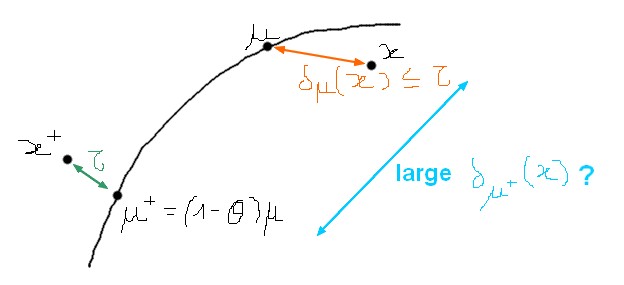 μ
x
δμ(x) ≤ τ
x⁺
τ
large δμ⁺(x) ?
μ⁺ = (1-θ)μ